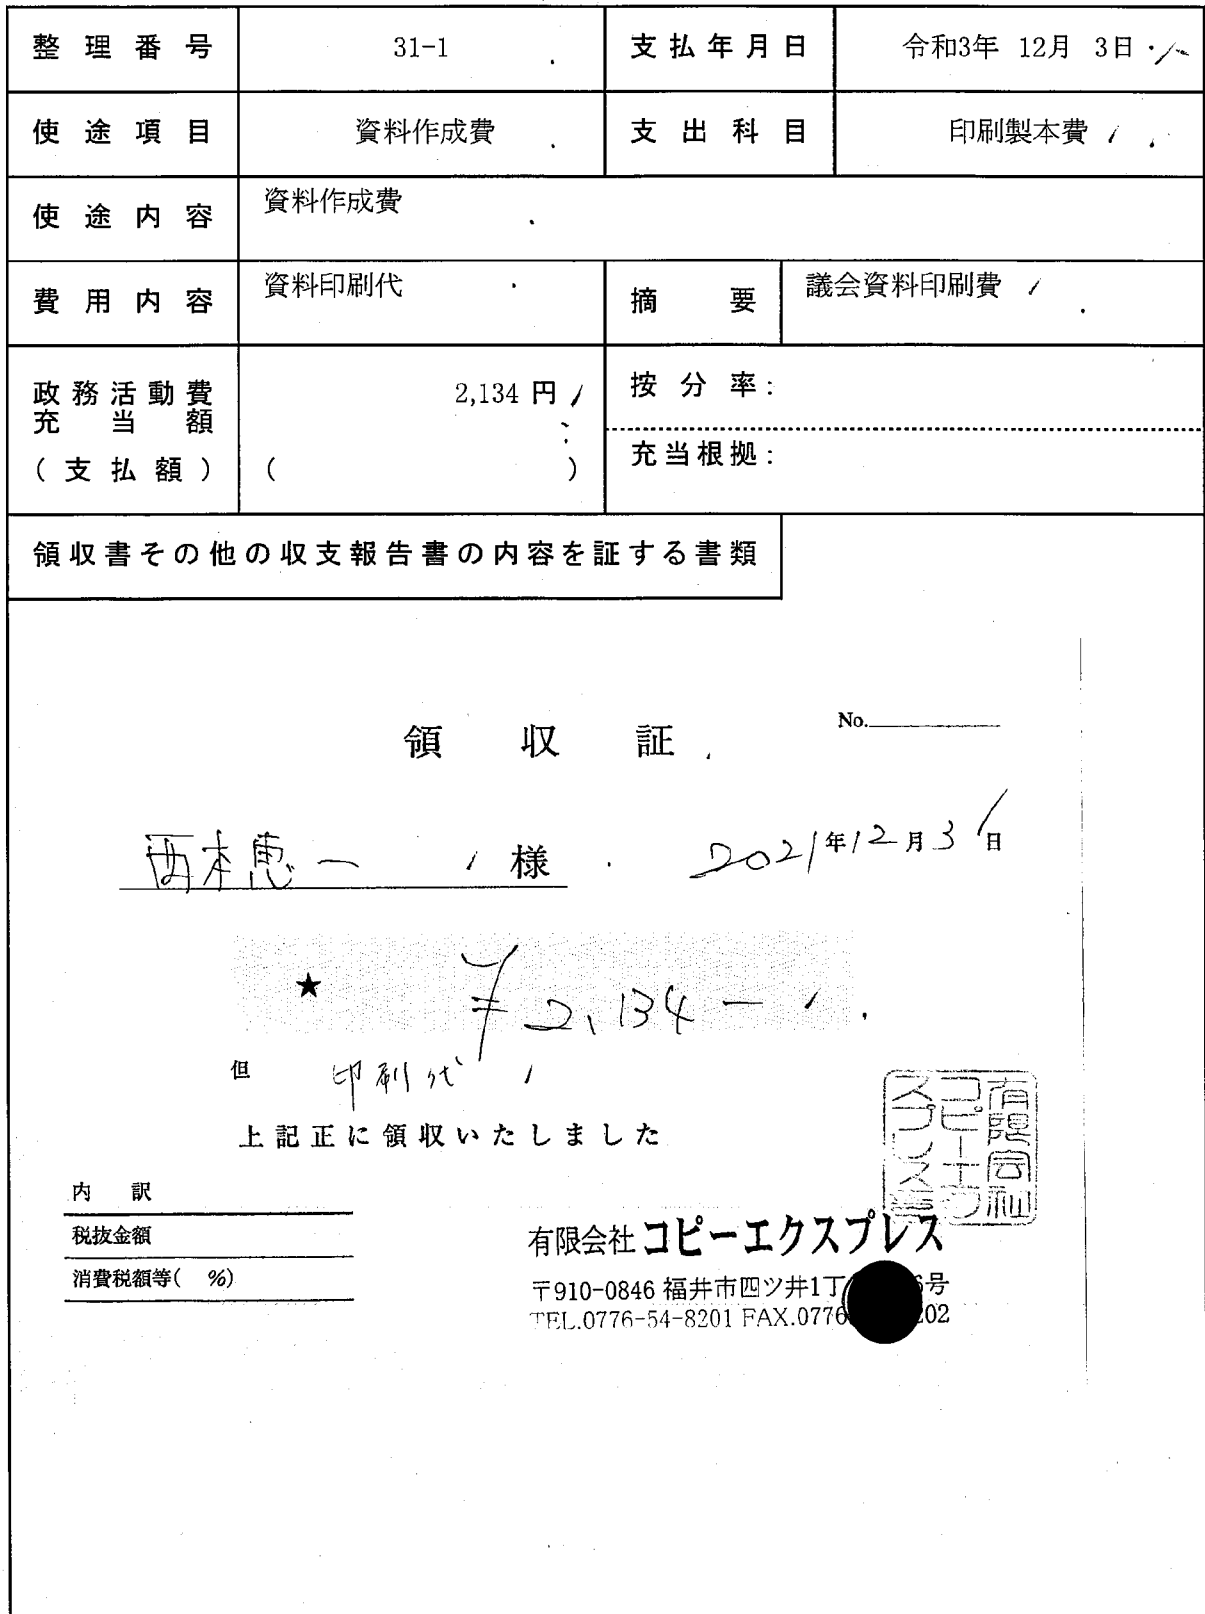 整理番号 31-1 支払年月日 令和3年 12月 3日
使途項目 資料作成費 支出科目 印刷製本費
使途内容 資料作成費
費用内容 資料印刷代 摘要 議会資料印刷費
政務活動費 2,134 円 按分率:
充当額
(支払額) ( ) 充当根拠:
領収書その他の収支報告書の内容を証する書類
領収証 No.
西本恵一 様 2021年12月3日
★ ¥2,134-
但 印刷代
上記正に領収いたしました
内訳
税抜金額
消費税額等( %)
有限会社 コピーエクスプレス
〒910-0846 福井市四ツ井1丁 号
TEL.0776-54-8201 FAX.0776 202
有限会社
コピーエク
スプレス